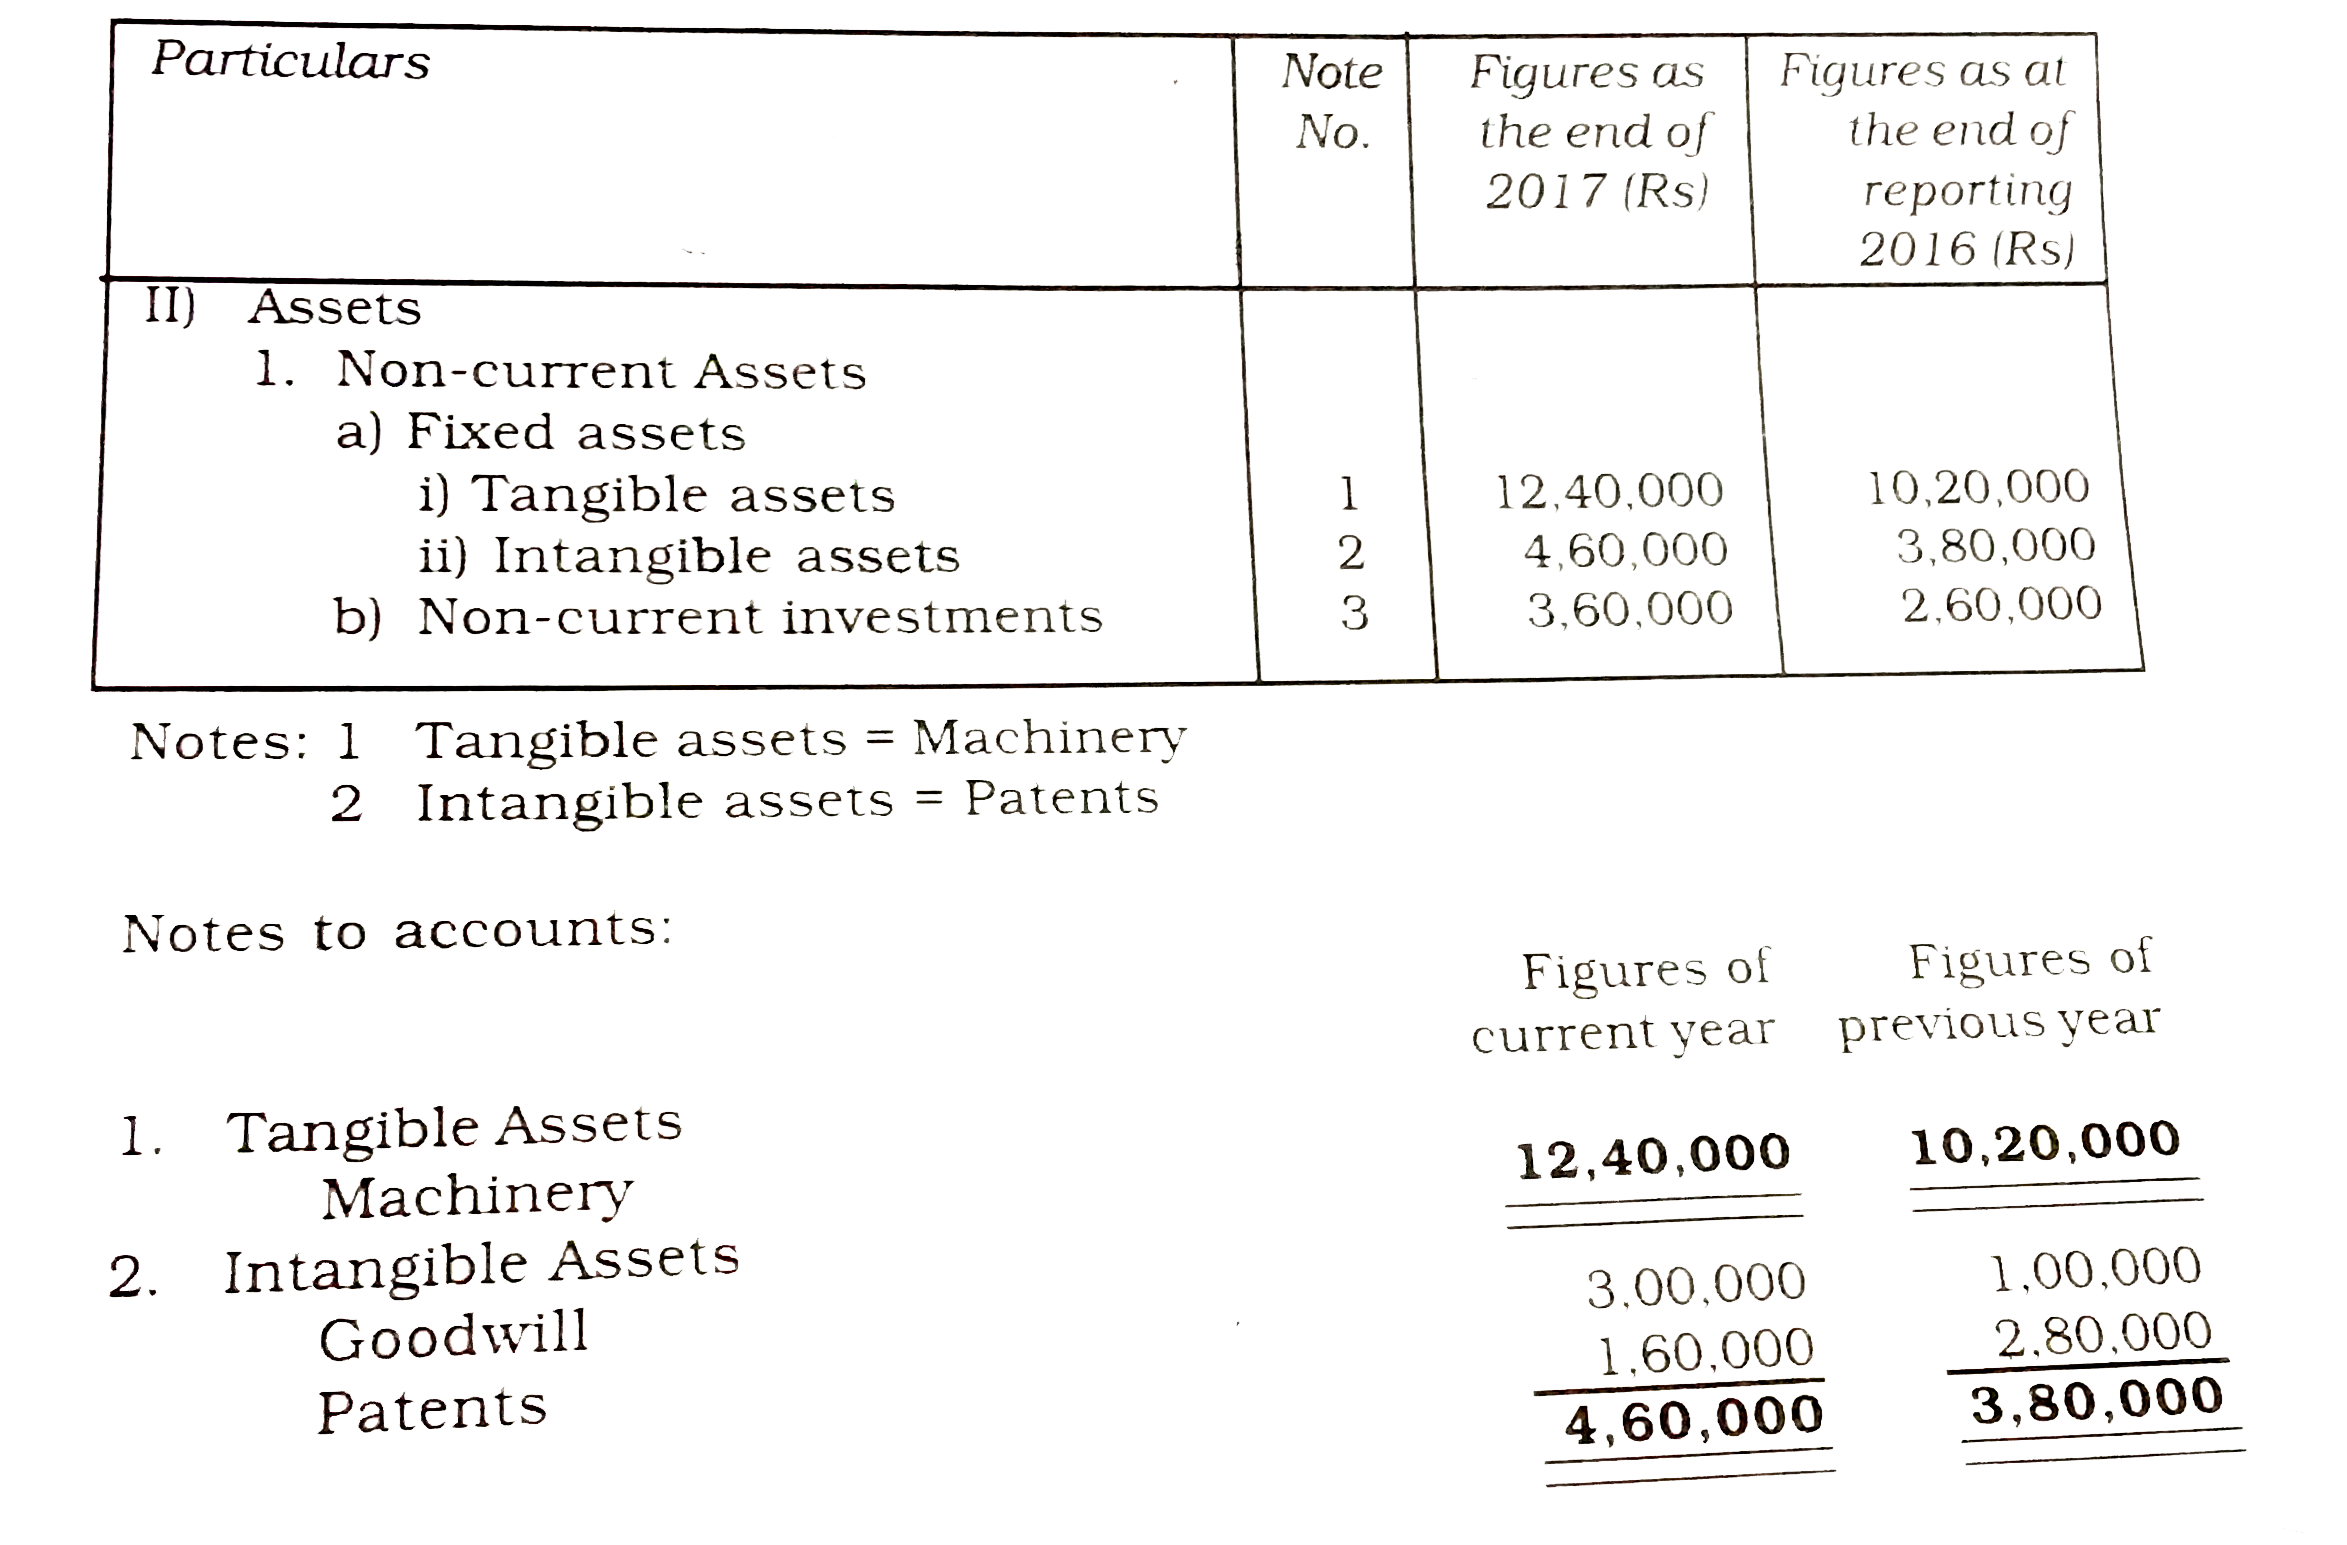 Particulars Note No. Figures as the end of 2017 (Rs) Figures as at the end of reporting 2016 (Rs)
II) Assets
1. Non-current Assets
a) Fixed assets
i) Tangible assets 1 12,40,000 10,20,000
ii) Intangible assets 2 4,60,000 3,80,000
b) Non-current investments 3 3,60,000 2,60,000
Notes: 1 Tangible assets = Machinery
2 Intangible assets = Patents
Notes to accounts:
Figures of Figures of
current year previous year
1. Tangible Assets 12,40,000 10,20,000
Machinery
2. Intangible Assets 3,00,000 1,00,000
Goodwill 1,60,000 2,80,000
Patents 4,60,000 3,80,000